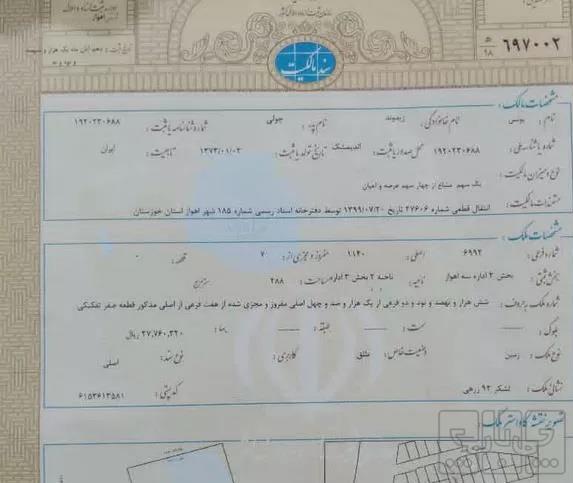 ۶۹۷۰۰۲
۵
۱۸
سند مالکیت
مشخصات مالک :
نام : یونس نام خانوادگی : زیبوند نام پدر : چولی شماره شناسنامه یا ثبت : ۱۹۲۰۲۳۰۶۸۸
شماره یا شناسه ملی : ۱۹۲۰۲۳۰۶۸۸ محل صدور یا ثبت : اندیمشک تاریخ تولد یا ثبت : ۱۳۷۳/۰۱/۰۳ تابعیت : ایران
نوع و میزان مالکیت :
یک سهم مشاع از چهار سهم عرصه و اعیان
مستندات مالکیت : انتقال قطعی شماره ۲۷۶۰۶ تاریخ ۱۳۹۹/۰۷/۲۰ توسط دفترخانه اسناد رسمی شماره ۱۸۵ شهر اهواز استان خوزستان
مشخصات ملک :
شماره فرعی : ۶۹۹۲ اصلی : ۱۱۴۰ مفروز و مجزی از : ۷۰ قطعه : ۰
بخش ثبتی : بخش ۲ اداره سه اهواز ناحیه : ناحیه ۲ بخش ۳ اداره مساحت : ۲۸۸ مترمربع
شماره ملک به حروف : شش هزار و نهصد و نود و دو فرعی از یک هزار و صد و چهل اصلی مفروز و مجزی شده از هفت فرعی از اصلی مذکور قطعه صفر تفکیکی
بلوک : سمت : طبقه : بها : ۲۷,۷۶۰,۳۲۰ ریال
نوع ملک : زمین وضعیت خاص : طلق کاربری : نوع سند : اصلی
نشانی ملک : لشکر ۹۲ زرهی کد پستی : ۶۱۵۳۶۱۳۵۸۱
تصویر نقشه کاداستر ملک: